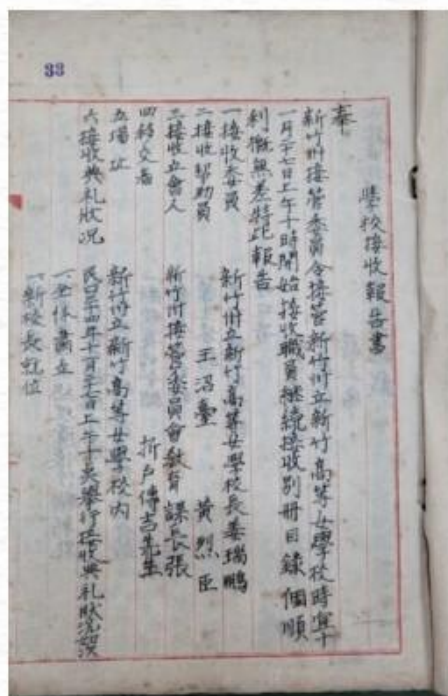 33
學校接收報告書
奉
新竹州接管委員令接管新竹州立新竹高等女學校時宜十
一月二十七日上午十時開始接收職員継続接收別冊目錄個順
利概無差特此報告
一接收委員 新竹州立新竹高等女學校長姜瑞鵬
二接收幫助員 王沼臺 黃烈臣
三接收立會人 新竹州接管委員會教育課長張
四移交者 折戶傳吉先生
五場址 新竹州立新竹高等女學校內
六接收典礼狀況 民國三四年十一月二十七日上午十点舉行接收典礼狀況如次
一全体肅立
一新校長就位